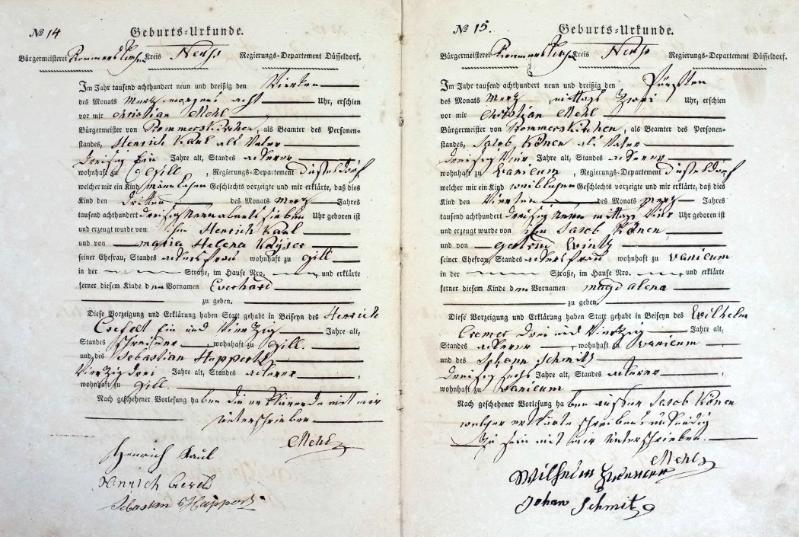 № 14
Geburts-Urkunde.
Bürgermeisterei Rommerskirchen Kreis Neuß Regierungs-Departement Düsseldorf.
Im Jahr tausend achthundert neun und dreißig den Vierten
des Monats Merz morgens acht Uhr, erschien
vor mir Christian Mehl
Bürgermeister von Rommerskirchen, als Beamter des Personen-
standes, Henrich Kaul als Vater
dreisig Ein Jahre alt, Standes ackerer
wohnhaft zu Gill, Regierungs-Departement Düsseldorf
welcher mir ein Kind männlichen Geschlechts vorzeigte und mir erklärte, daß dies
Kind den dritten des Monats Merz Jahres
tausend achthundert dreisig neun abends sieben Uhr geboren ist
und erzeugt wurde von ihm Henrich Kaul
und von maria Helena Kayser
seiner Ehefrau, Standes ackersfrau wohnhaft zu gill
in der Straße, im Hause Nro. und erklärte
ferner diesem Kinde den Vornamen Everhard
zu geben.
Diese Vorzeigung und Erklärung haben Statt gehabt in Beiseyn des Henrich
Ein und Vierzig Jahre alt,
Standes schreiner, wohnhaft zu gill.
und des Sebastian Happertz
Vierzig drei Jahre alt, Standes ackerer
wohnhaft zu gill.
Nach geschehener Vorlesung haben die mit mir
unterschrieben
Mehl
Henrich Kaul
Hinrich
Sebastian Happertz
№ 15.
Geburts-Urkunde.
Bürgermeisterei Rommerskirchen Kreis Neuß Regierungs-Departement Düsseldorf.
Im Jahr tausend achthundert neun und dreißig den Fünften
des Monats Merz, mittags zwei Uhr, erschien
vor mir Christian Mehl
Bürgermeister von Rommerskirchen, als Beamter des Personen-
standes, Jacob Könen als Vater
dreisig Vier Jahre alt, Standes ackerer
wohnhaft zu Vanicum, Regierungs-Departement Düsseldorf
welcher mir ein Kind weiblichen Geschlechts vorzeigte und mir erklärte, daß dies
Kind den Vierten des Monats Merz Jahres
tausend achthundert dreisig neun mittags Vier Uhr geboren ist
und erzeugt wurde von ihm Jacob Könen
und von
seiner Ehefrau, Standes ackersfrau wohnhaft zu Vanicum
in der Straße, im Hause Nro. und erklärte
ferner diesem Kinde den Vornamen magdalena
zu geben
Diese Vorzeigung und Erklärung haben Statt gehabt in Beiseyn des Wilhelm
Cremer drei und Vierzig Jahre alt,
Standes ackerer, wohnhaft zu Vanicum
und des Johann Schmitz
dreisig sechs Jahre alt, Standes ackerer
wohnhaft zu Vanicum
Nach geschehener Vorlesung haben außer Jacob Könen
welcher erklärte schreibens unkundig
zu sein mit mir unterschrieben.
Mehl
Wilhelm Cremer
Johan Schmitz